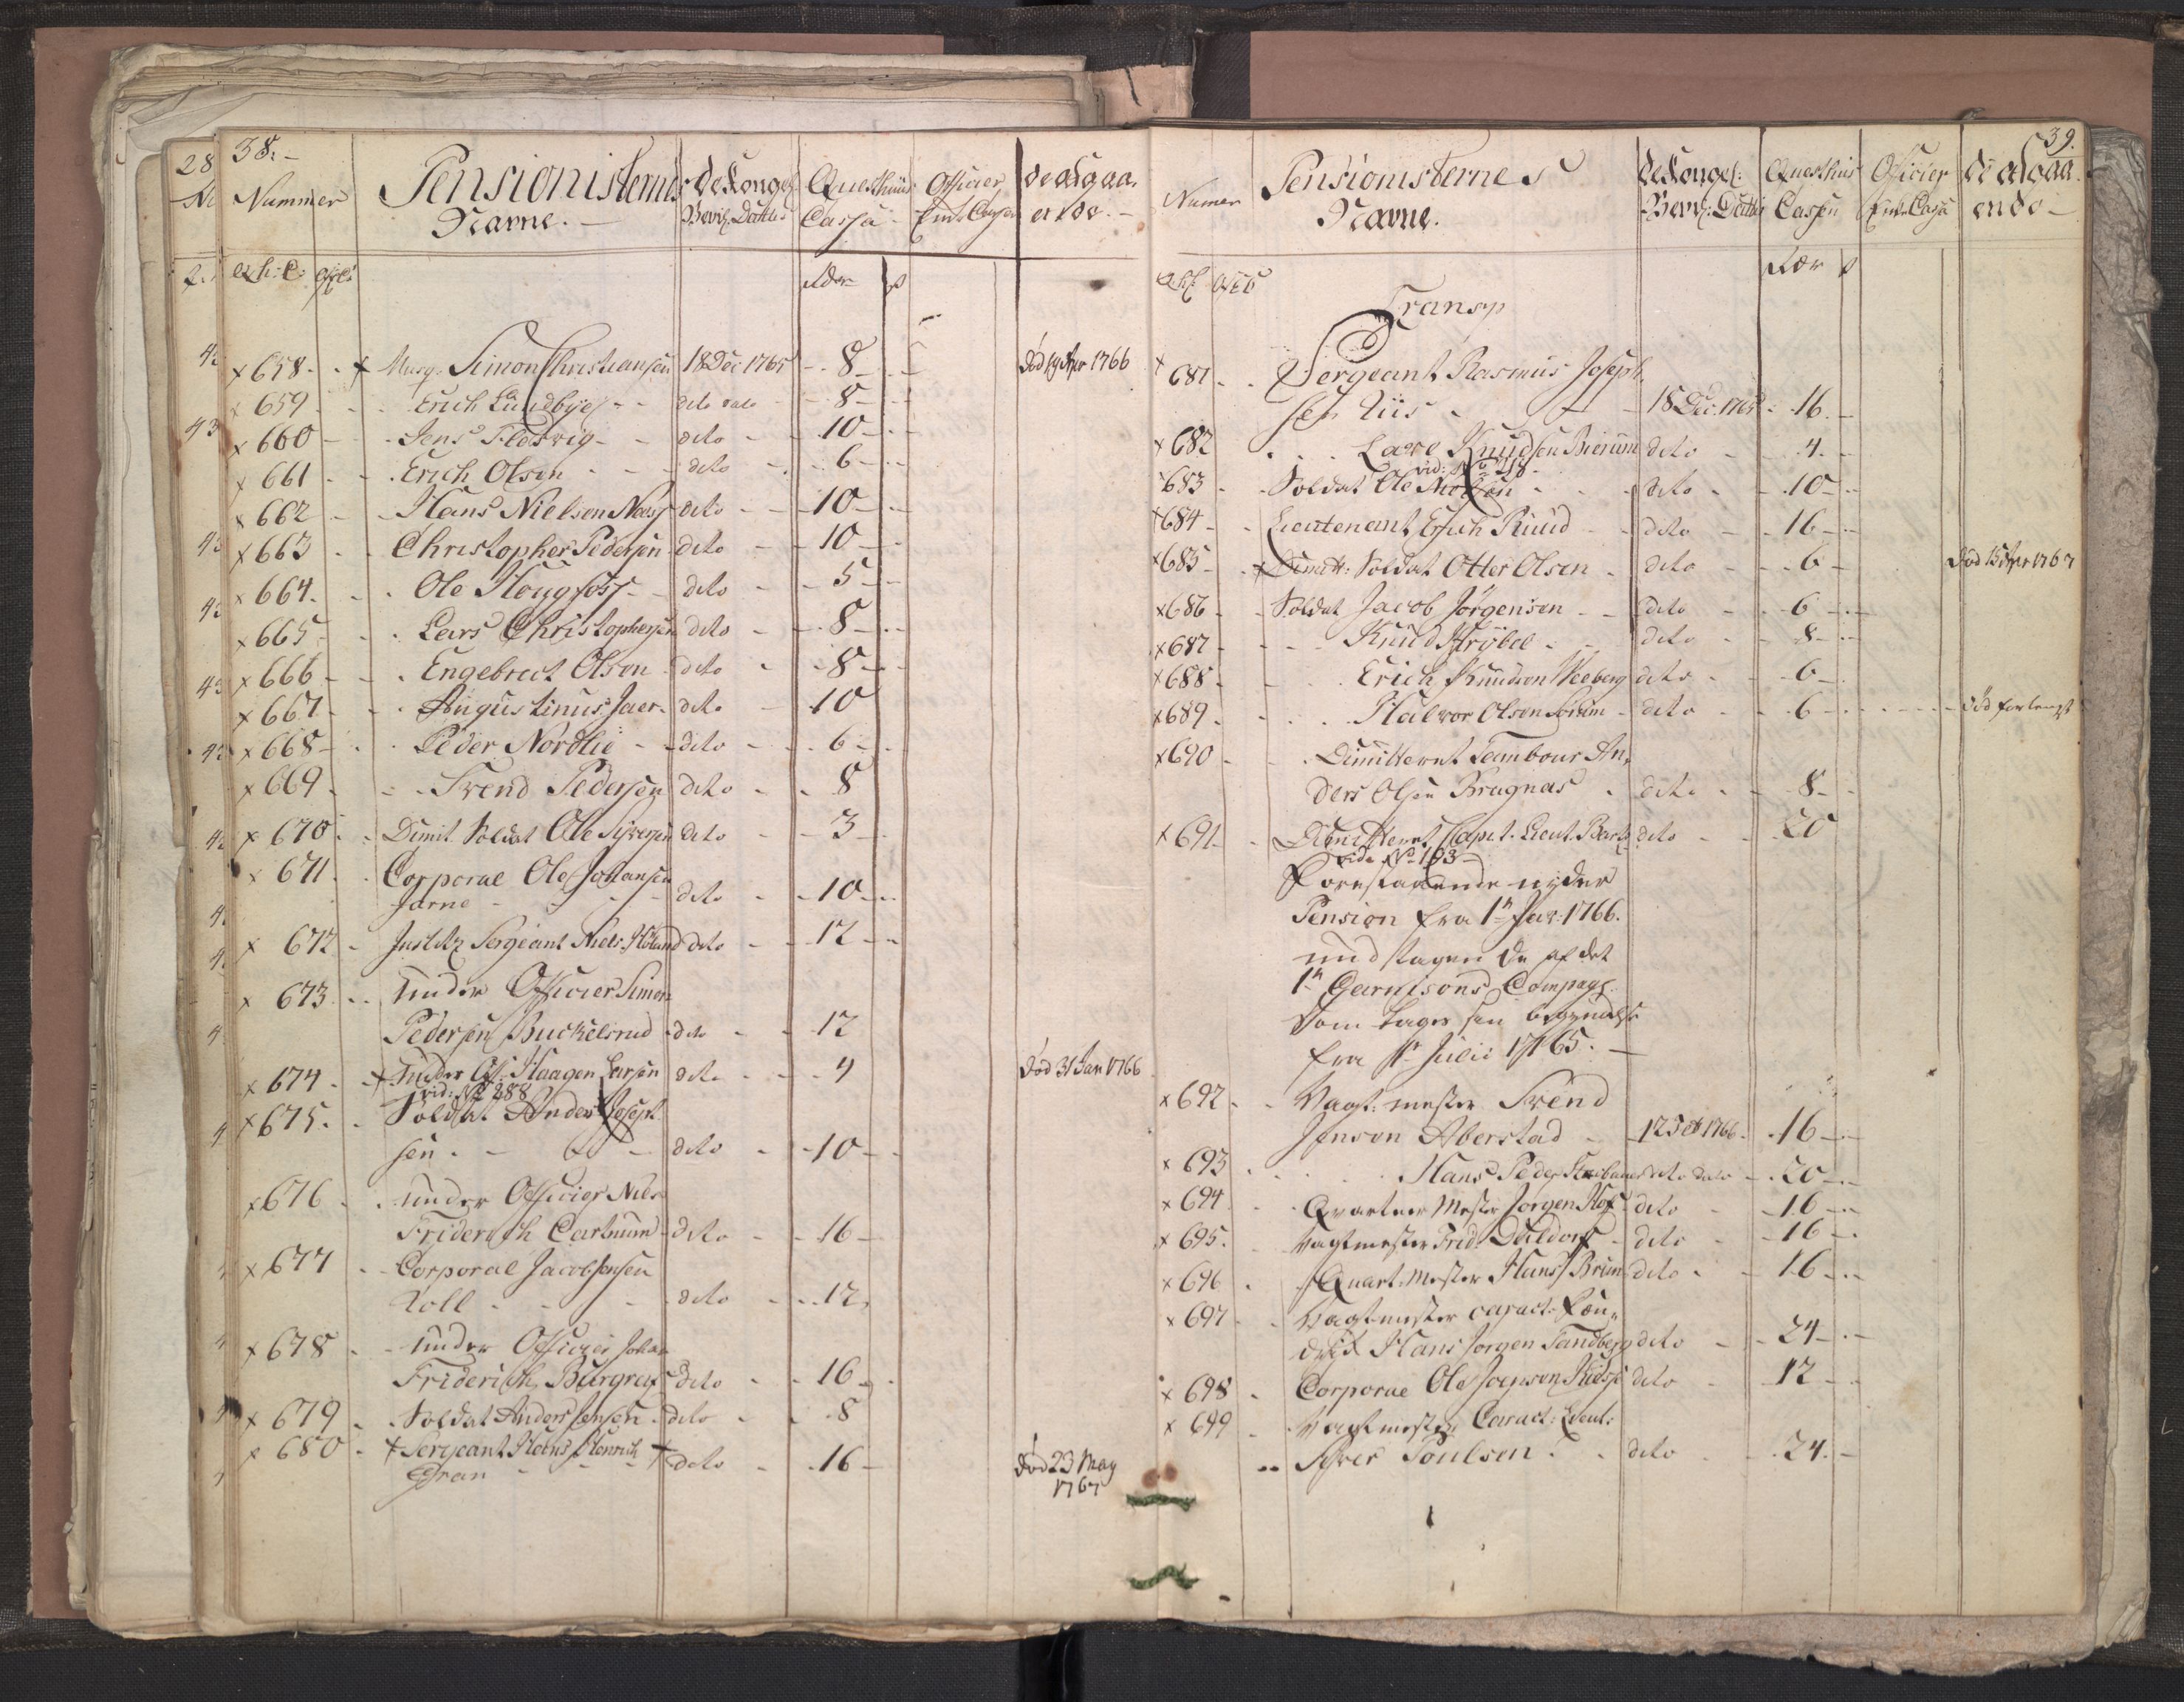 38.-
Nummer
Pensionisternes
Navne.-
de Kongel
Bevil: Datus
Questhuus
Cassa
Officier
Enke Cassa
de afgaa-
ende.-
Qh: C:
Rdr
ß
x 658 - . x Musq. Simon Christiansen 18 Dec 1765 - 8 - Død 19 Apr 1766
x 659 Erich Lundbye - dito dato 8 -
x 660 - Jens Fledvig - - dito 10 -
x 661 . Erich Olsen - - - dito 6 -
x 662 - Hans Nielsen Naess dito - 10 -
x 663 . Christopher Pedersen dito - 10 -
x 664. . Ole Hougfoss - - dito 5 -
x 665 - . Lars Christophersen dito - 8 -
x 666 - . Engebrect Olsen dito - 8 -
x 667 - . Augustinus Jaer - dito 10
x 668 - . Peder Nordlie - - dito 6 -
x 669 - - Svend Pedersen dito - 8
x 670 - Dimit. Soldat Ole Syversen dito 3
x 671. . Corporal Ole Johansen
Jarne - - - dito - 10 -
x 672 - Justitz Sergeant Niels Höland dito - 12 -
x 673 - Under Officier Simon
Pedersen Buckelsrud - dito - 12
x 674 - x Under Off. Haagen Larsen dito - 4 Død 31 Jan 1766
vid: No 288
x 675. . Soldat Anders Joseph-
sen. - - dito - 10 -
x 676 - . Under Officier Niels
Friderich Cartnum - dito - 16 -
x 677 - Corporal Jacob Jensen
Koll - - - dito - 12.
x 678 - Under Officier Johan
Friderich Burgraf dito - 16 -
x 679 - Soldat Anders Jensen - dito - 8
x 680 - x Sergeant Hans Henrich x
Gran - - - dito - 16 - død 23 May
1767
39.
Numer
Pensionisternes
Navne.
de Kongel:
Bevil: Datus
Questhus
Cassa
Officier
Enke Cassa
de afgaa-
ende -
Rdr ß
Transp
x 681 . . Sergeant Rasmus Joseph-
sen Liis - - 18 Dec. 1765 - 16 -
x 682 . . . Lars Knudsen Bierum dito - 4 -
vid: No 218 -
x 683 - Soldat Ole Nielsen - - dito - 10 -
x 684 - Lieutenant Erich Ruud - dito - 16 -
x 685 - . x Dimitt: Soldat Otter Olsen - dito - 6 - død 15 Apr 1767
x 686 - - Soldat Jacob Jörgensen - - dito - 6 -
x 687 - - - Knud Strøbel - - dito - 8 -
x 688 - - . Erich Knudsen Weeberg dito - 6 -
x 689 - - . . Halvor Olsen Sörum - dito - 6 - - - - død forlengst
x 690 - - . Dimitteret Tambour An-
ders Olsen Bragnæs - dito - 8 -
x 691 - - Dimitteret Capit. Lieut. Barth dito - 20
vide No 103 -
Forestaaende nyder
Pension fra 1te Jan: 1766.
undtagen de af det
1te Garnisons Compagn.
som tager sin begyndelse
fra 1te Julii 1765. -
x 692 - - Vagt: mester Svend
Jenson Aberstad - 12 Feb 1766 - 16 -
x 693 . Hans Peder dito dato - 20 -
x 694 - . Qvarteer Mester Jorgen Hof dito - 16 -
x 695. - Vagtmester Frid: Duldorf - dito - 16 -
x 696 . Quart. Mester Hans Brun dito - 16 -
x 697 - - Vagtmester caract. Fæn-
drich Hans Jorgen Sandberg dito - 24 -
x 698 - Corporal Ole Joensen dito - 12 -
x 699 - . Vagtmester Caract: Lieut:
Iver Poulsen . . dito - 24. -